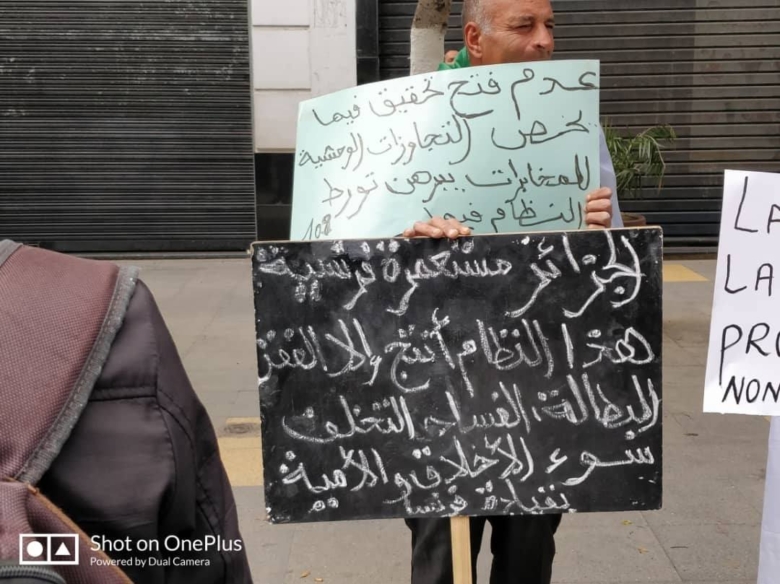 عدم فتح تحقيق فيما
يخص التجاوزات الوحشية
للمخابرات يبرهن تورط
النظام فيها
الجزائر مستعمرة فرنسية
هذا النظام أنتج إلا الفقر
البطالة، الفساد، التخلف
سوء الأخلاق و الأمية
بقيادة فرنسا
LA
LA
PRO
NON
Shot on OnePlus
Powered by Dual Camera